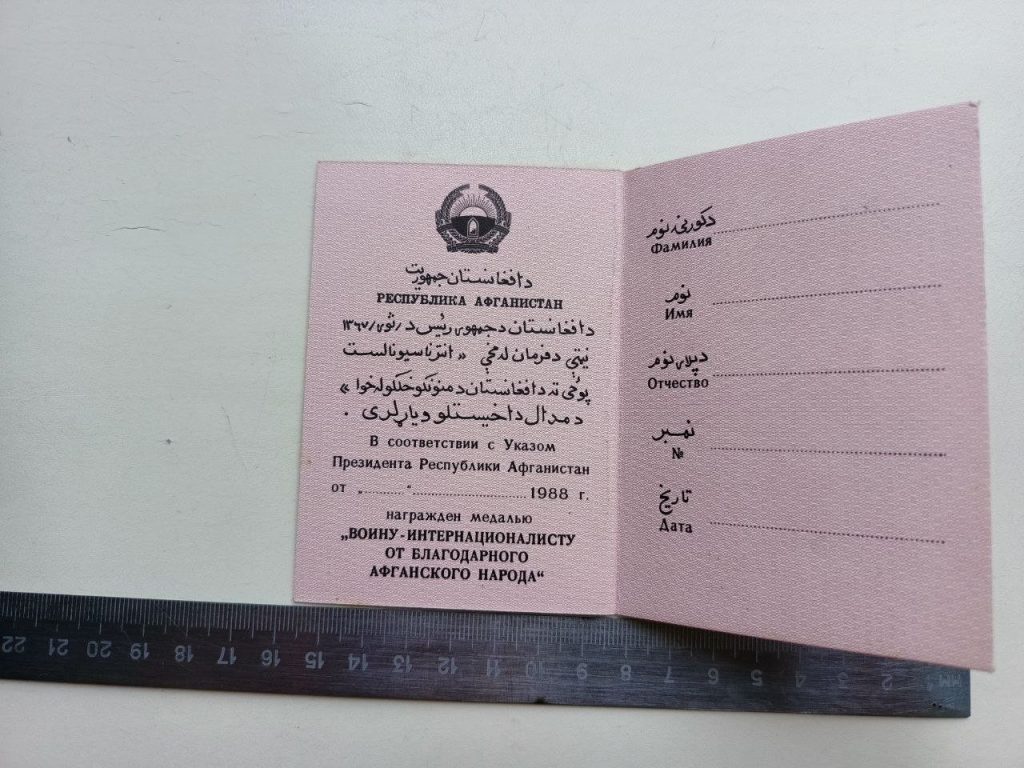 دافغانستان جمهوریت
РЕСПУБЛИКА АФГАНИСТАН
دافغانستان دجمهوری رئیس د / ثور / ۱۳۶۷
نیټې دفرمان له مخې « انترناسیونالست
پوځي ته دافغانستان دمنونکو خلکو له خوا »
دمدال داخیستلو ویاړ لری .
В соответствии с Указом
Президента Республики Афганистан
от „..........“..........................1988 г.
награжден медалью
„ВОИНУ-ИНТЕРНАЦИОНАЛИСТУ
ОТ БЛАГОДАРНОГО
АФГАНСКОГО НАРОДА“
دکورنۍ نوم
Фамилия
نوم
Имя
دپلار نوم
Отчество
نمبر
№
تاریخ
Дата
22 21 20 19 18 17 16 15 14 13 12 11 10 9 8 7 6 5 4 3 2 1 мм